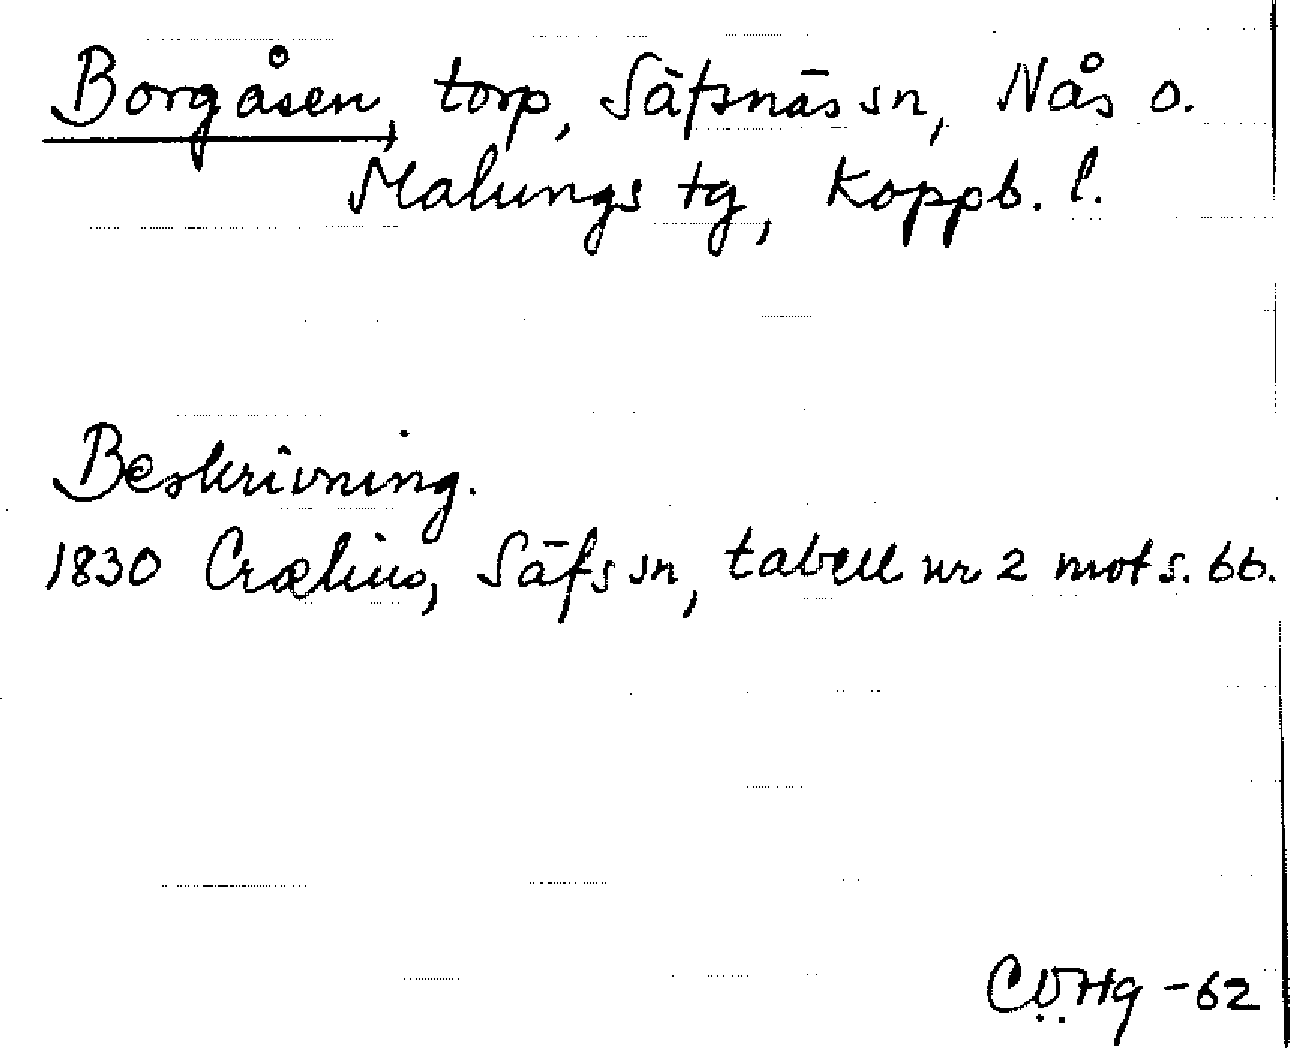 Borgåsen, torp, Säfsnäs sn, Nås o.
Malungs tg, Koppb. l.
Beskrivning.
1830 Crælius, Säfs sn, tabell nr 2 mot s. 66.
-62